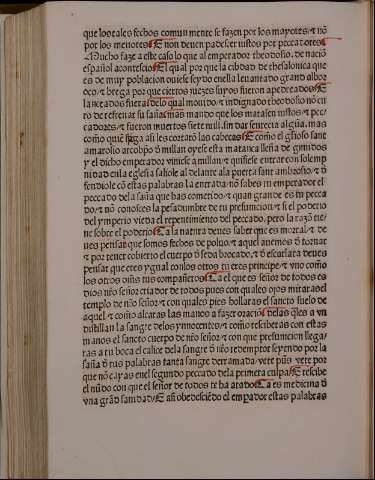 que los tales fechos comun mente se fazen por los mayores ⁊ nõ
por los menores E non deuen padesçer iustos por peccadores
Mucho faze a este caso lo que al emperador theodosio. de naciõ
español acontescio El qual por que la cibdad de thesalonica que
es de muy poblacion ouiese seydo en ella leuantado grand albo
oco ⁊ brega por que ciertos iuezes suyos fueron apedreados E
la neados fuera delo qual mouido ⁊ indignado theodosio nõ cu
ro de refrenar su saña mas mando que los matasen iustos ⁊ pec
cadores ⁊ fueron muertos siete mill. sin dar sentencia algũa. mas
como quiẽ siega asi les cortarõ las cabeças E como el glioso sant
amatolio arcobpõ đ millan oyese esta matança llena de gemidos
y el dicho emperador viniese a millan ⁊ quisiese entrar con solemp
nidad en la eglesia saliole al delante ala puerta sant ambrosio. ⁊ đ
fendiole cõ estas palabras la entrada. nõ sabes tu emperador el
peccado de la saña que has cometido. ⁊ quan grande es tu pecca
do. ⁊ nõ conosces la pesadumbre de tu presuncion. ⁊ si el poderio
del ymperio vieda el repentimiento del peccado. pero la razõ tie
ne sobre el poderio Ca la natura deues saber que es mortal. ⁊ de
ues pensar que somos fechos de poluo. ⁊ aquel auemos đ tornar
⁊ por tener cobierto el cuerpo đ seda brocado. ⁊ đ escarlata deues
pensar que eres ygual con los otros tu eres principe. ⁊ vno como
los otros oms tus compañeros Ca el que es señor de todos es
dios nrõ señor criador de todos pues con quales ojos miraras el
templo de nrõ señor. ⁊ con quales pies hollaras el sancto suelo de
aquel ⁊ como alcaras las manos a fazer oraciõ delas q̃les a vn
distillan la sangre delos ynnocentes. ⁊ como rescibiras con estas
manos el sancto cuerpo de nrõ señor. ⁊ con que presuncion llega
ras a tu boca el calice dela sangre đ nrõ redemptor seyendo por la
saña đ tus palabras tanta sangre derramada. vete pues vete por
que nõ cayas en el segundo peccado dela primera culpa E rescibe
el ñudo con que el señor de todos te ha atado Ca es medicina đ
vna grãd sanidad E asi obedesciẽdo el emperador estas palabras